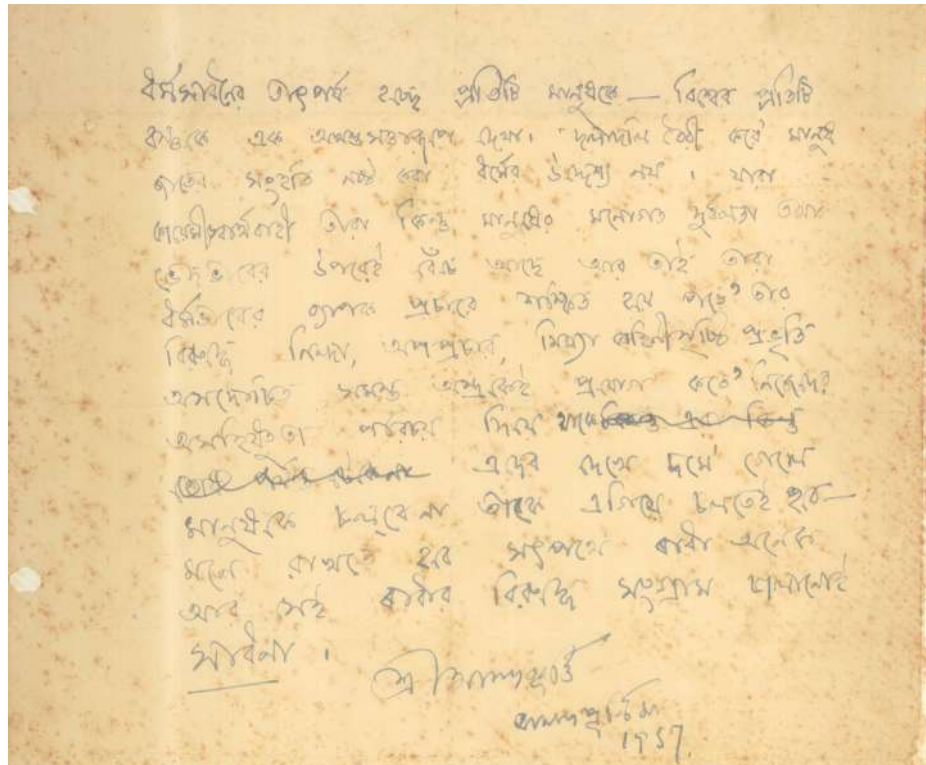 ধর্মসাধনার তাৎপর্য হচ্ছে প্রতিটি মানুষকে — বিশ্বের প্রতিটি
বস্তুকে এক অখণ্ডসত্তারূপে দেখা। দলাদলি তৈরী করে' মানুষ
জাতের সংহতি নষ্ট করা ধর্মের উদ্দেশ্য নয়। যারা
কায়েমীস্বার্থবাহী তারা কিন্তু মানুষের মনোগত দুর্বলতা তথা
ভেদভাবের উপরেই বেঁচে আছে আর তাই তারা
ধর্মভাবের ব্যাপক প্রচারে শঙ্কিত হয়ে পড়ে' তার
বিরুদ্ধে নিন্দা, অপপ্রচার, মিথ্যা কাহিনীসৃষ্টি প্রভৃতি
সমস্ত অস্ত্রকেই প্রয়োগ করে' নিজেদের
অসহিষ্ণুতা পরিচয় দিয়ে থাকে
এদের দেখে দমে' গেলে
মানুষকে চলবে না তাকে এগিয়ে চলতেই হবে—
মনে রাখতে হবে সৎপথে বাধা অনেক
আর সেই বাধার বিরুদ্ধে সংগ্রাম চালানোই
সাধনা।
শ্রীশ্রীআনন্দমূর্ত্তি
আনন্দপূর্ণিমা
1957.